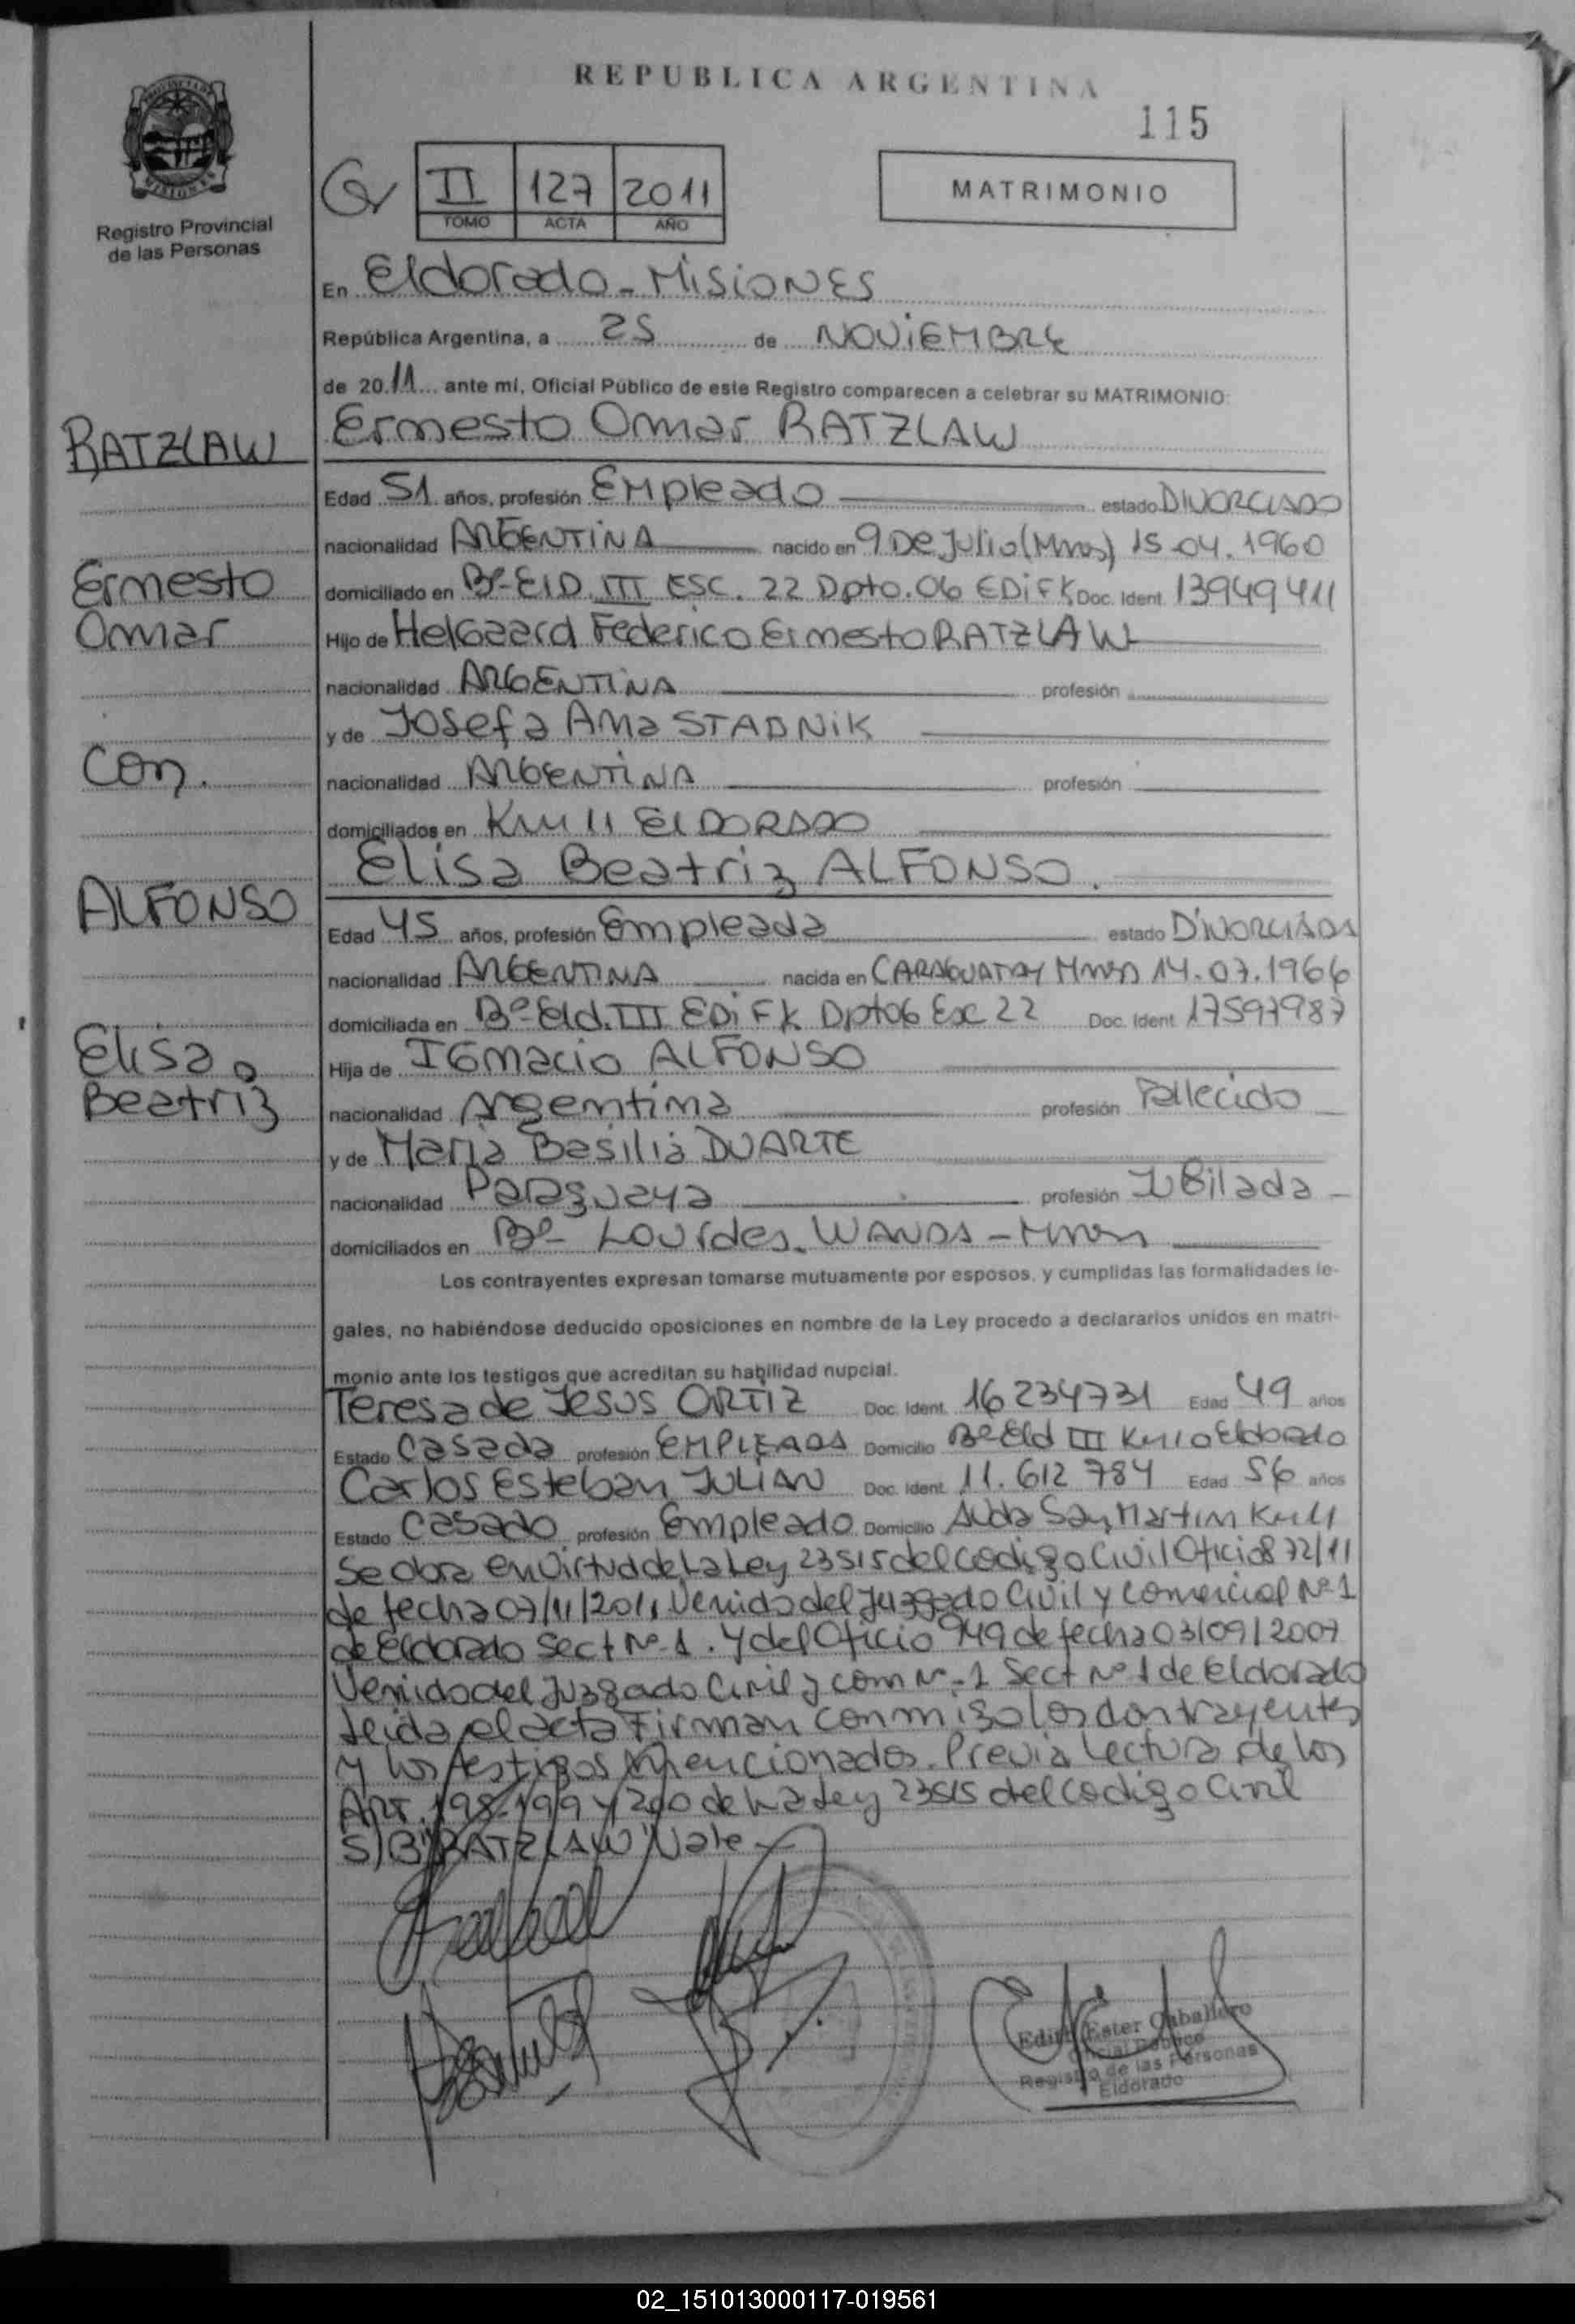 REPUBLICA ARGENTINA
115
Registro Provincial
de las Personas
II 127 2011
TOMO ACTA AÑO
MATRIMONIO
En Eldorado - Misiones
República Argentina, a 25 de NOVIEMBRE
de 2011 ante mí, Oficial Público de este Registro comparecen a celebrar su MATRIMONIO:
RATZLAW
Ernesto Omar RATZLAW
Edad 51 años, profesión Empleado estado DIVORCIADO
nacionalidad ARGENTINA nacido en 9 De Julio (Mnes) 15-04.1960
Ernesto
domiciliado en Bº-ElD. III ESC. 22 Dpto. 06 EDiF K Doc. Ident. 13949411
Omar
Hijo de Helgaard Federico Ernesto RATZLAW
nacionalidad ARGENTINA profesión
y de Josefa Ana STADNIK
Con.
nacionalidad ARGENTINA profesión
domiciliados en Km 11 ElDORADO
Elisa Beatriz ALFONSO.
ALFONSO
Edad 45 años, profesión Empleada estado DIVORCIADA
nacionalidad ARGENTINA nacida en CARAGUATAY Mnes 14.07.1966
domiciliada en Bº Eld. III EDiF K Dpto 06 Esc 22 Doc. Ident. 17597987
Elisa
Hija de IGnacio ALFONSO
Beatriz
nacionalidad Argentina profesión Fallecido
y de Maria Basilia DUARTE
nacionalidad Paraguaya profesión JuBilada
domiciliados en Bº- Lourdes. WANDA - Mnes
Los contrayentes expresan tomarse mutuamente por esposos, y cumplidas las formalidades le-
gales, no habiéndose deducido oposiciones en nombre de la Ley procedo a declararlos unidos en matri-
monio ante los testigos que acreditan su habilidad nupcial.
Teresa de Jesus ORTIZ Doc. Ident. 16234731 Edad 49 años
Estado Casada profesión EMPLEADA Domicilio Bº Eld III Km 10 Eldorado
Carlos Esteban JULIAN Doc. Ident. 11.612 784 Edad 56 años
Estado Casado profesión Empleado Domicilio Avda San Martin Km 11
Se obra en Virtud de La Ley 23515 del Codigo Civil Oficio 872/11
de fecha 07/11/2011 Venido del Juzgado Civil y Comercial Nº-1
de Eldorado Sect Nº-1. y del Oficio 949 de fecha 03/09/2007
Venido del Juzgado Civil y com Nº-1 Sect Nº 1 de Eldorado
leida el acta Firman conmigo los contrayentes
y los testigos mencionados. Previa Lectura de los
ART. 198-199 y 200 de La Ley 23515 del Codigo Civil
S/B "RATZLAW" Vale
Edith Ester Caballero
Oficial Público
Registro de las Personas
Eldorado
02_151013000117-019561